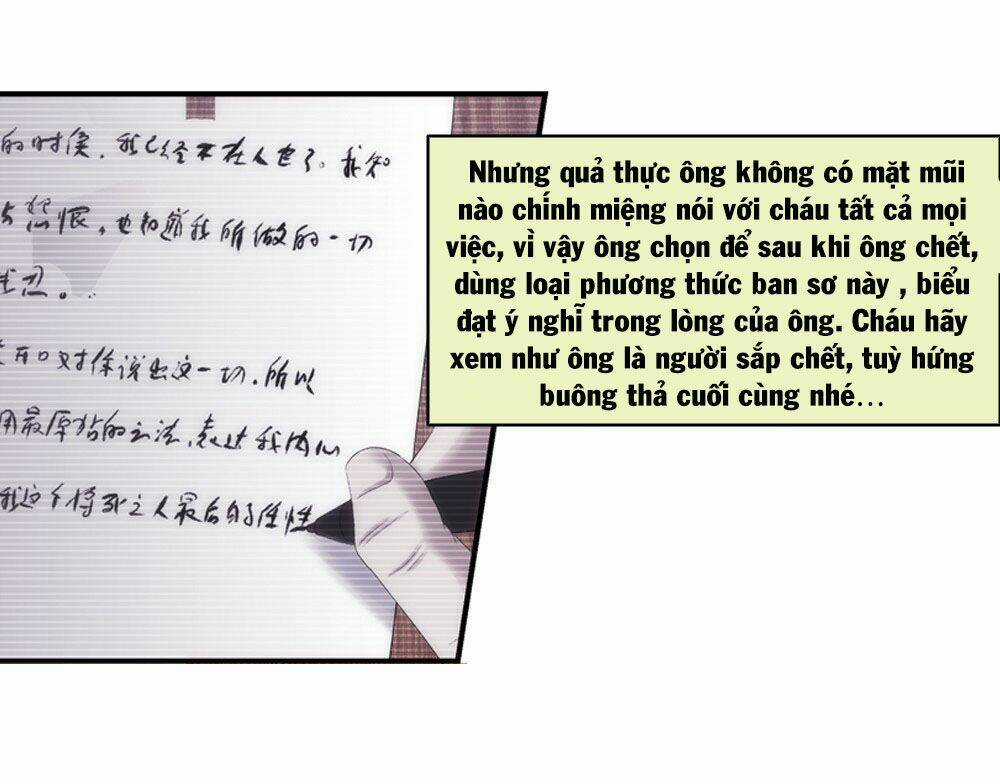 的时候，我已经不在人世了。我知
恨，也知道我所做的一切
开口对你说出这一切，所以
用最原始的方法，表达我内心
我这个将死之人最后的任性
Nhưng quả thực ông không có mặt mũi
nào chính miệng nói với cháu tất cả mọi
việc, vì vậy ông chọn để sau khi ông chết,
dùng loại phương thức ban sơ này , biểu
đạt ý nghĩ trong lòng của ông. Cháu hãy
xem như ông là người sắp chết, tuỳ hứng
buông thả cuối cùng nhé...